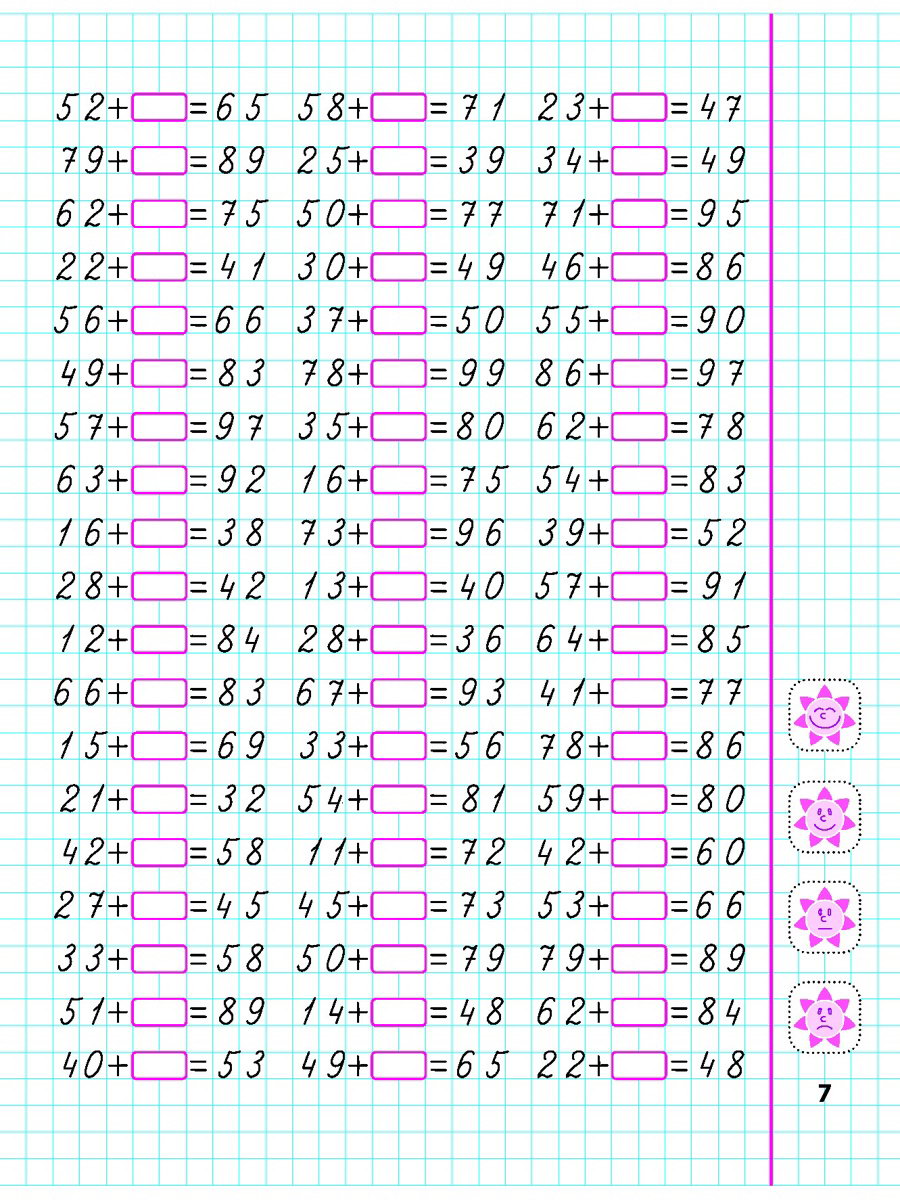 52+ = 65 58+ = 71 23+ = 47
79+ = 89 25+ = 39 34+ = 49
62+ = 75 50+ = 77 71+ = 95
22+ = 41 30+ = 49 46+ = 86
56+ = 66 37+ = 50 55+ = 90
49+ = 83 78+ = 99 86+ = 97
57+ = 97 35+ = 80 62+ = 78
63+ = 92 16+ = 75 54+ = 83
16+ = 38 73+ = 96 39+ = 52
28+ = 42 13+ = 40 57+ = 91
12+ = 84 28+ = 36 64+ = 85
66+ = 83 67+ = 93 41+ = 77
15+ = 69 33+ = 56 78+ = 86
21+ = 32 54+ = 81 59+ = 80
42+ = 58 11+ = 72 42+ = 60
27+ = 45 45+ = 73 53+ = 66
33+ = 58 50+ = 79 79+ = 89
51+ = 89 14+ = 48 62+ = 84
40+ = 53 49+ = 65 22+ = 48
7